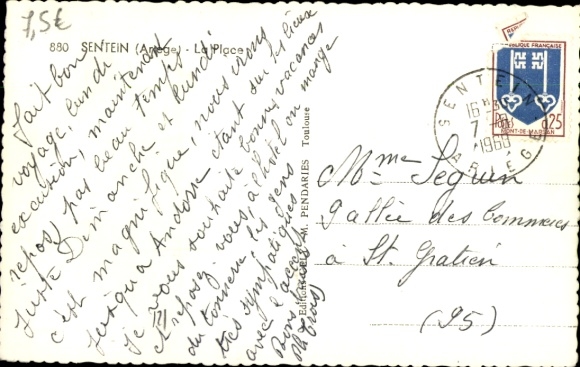 7,5€
880 SENTEIN (Ariège) - La Place
fait bon
voyage, lundi
excursion, maintenant
repos, pas beau temps
juste Dimanche et lundi
c'est magnifique, nous irons
jusqu'à Andorre étant sur les lieux
Je vous souhaite bonnes vacances
et reposez vous, à l'hôtel on mange
du tonnerre les gens
très sympatiques
avec l'accent
Bons
Editions M. PENDARIES Toulouse
RÉPUBLIQUE FRANÇAISE
0,25
MONT-DE-MARSAN
SENTEIN
16H
7
1966
ARIEGE
Mme Seguin
Gallée des Commerces
à St. Gratien
(95)